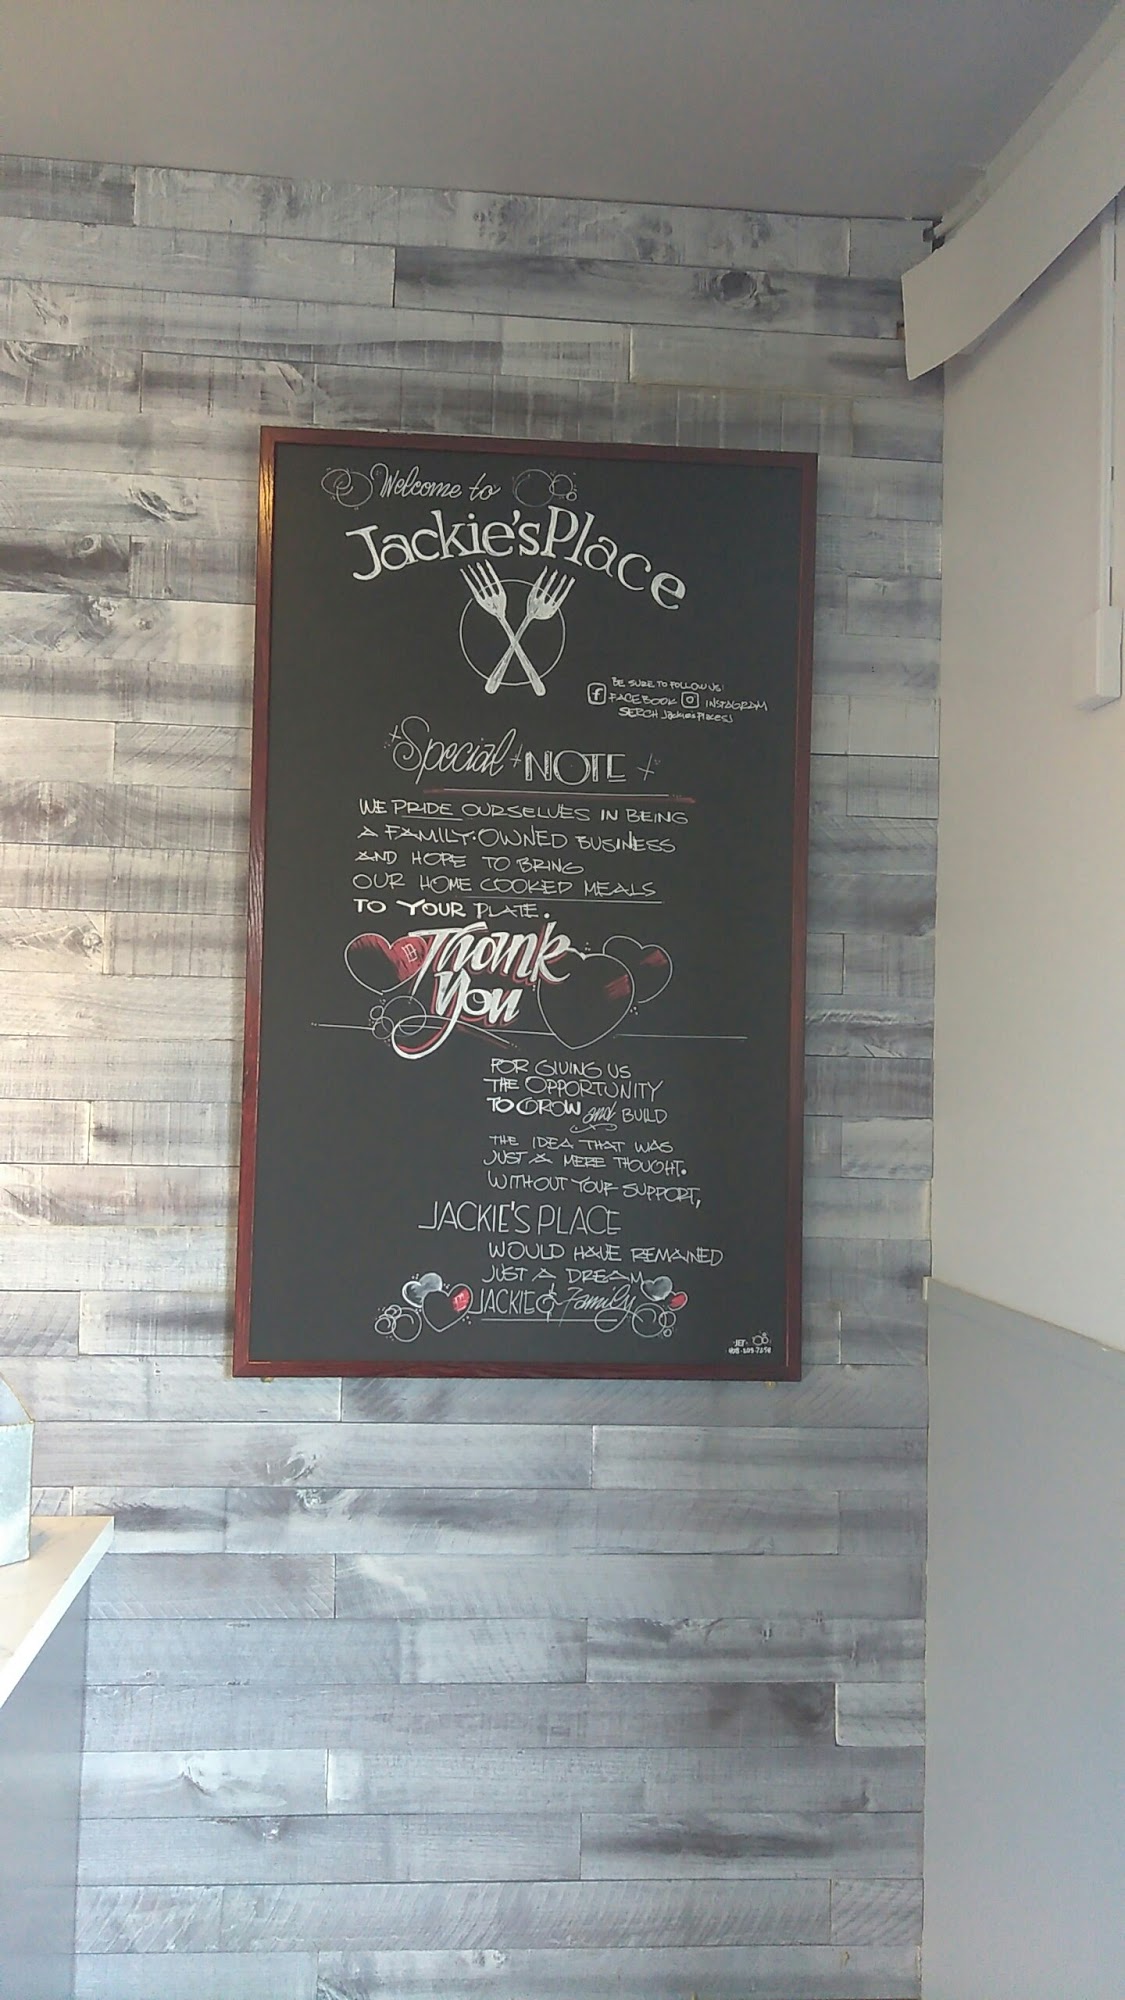 Welcome to
Jackie's Place
BE SURE TO FOLLOW US!
FACEBOOK INSTAGRAM
SERCH Jackie's Place SJ
Special NOTE
WE PRIDE OURSELVES IN BEING
A FAMILY-OWNED BUSINESS
AND HOPE TO BRING
OUR HOME COOKED MEALS
TO YOUR PLATE.
Thank
You
FOR GIVING US
THE OPPORTUNITY
TO GROW and BUILD
THE IDEA THAT WAS
JUST A MERE THOUGHT.
WITHOUT YOUR SUPPORT,
JACKIE'S PLACE
WOULD HAVE REMAINED
JUST A DREAM
JACKIE & Family